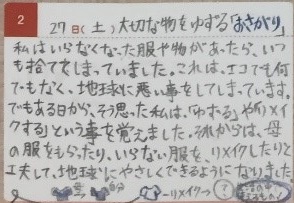 2
27日(土) 大切な物をゆずる「おさがり」
私はいらなくなった服や物があったら、いつ
も捨てをしまっていました。これは、エコでも何
でもなく、地球に悪い事をしてしまっています。
でもある日から、そう思った私は、「ゆずる」や「リメイ
クする」という事を覚えました。それからは、母
の服をもらったり、いらない服を、リメイクしたりと
工夫して、地球にやさしくできるようになりました。
母 → 自分 ーリメイク→